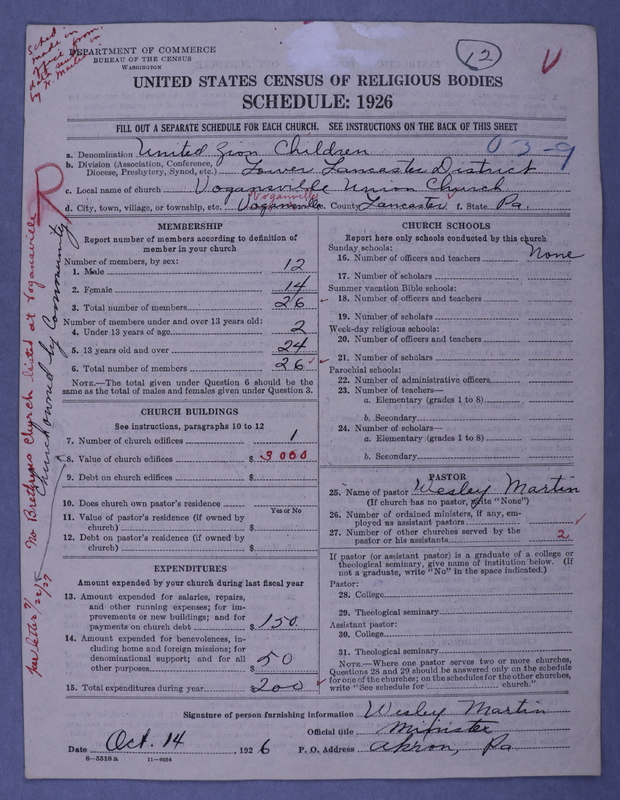 Sched. made in office from data sent in
DEPARTMENT OF COMMERCE
BUREAU OF THE CENSUS
WASHINGTON
12
UNITED STATES CENSUS OF RELIGIOUS BODIES
SCHEDULE: 1926
FILL OUT A SEPARATE SCHEDULE FOR EACH CHURCH. SEE INSTRUCTIONS ON THE BACK OF THIS SHEET
03-9
a. Denomination United Zion Children
b. Division (Association, Conference, Diocese, Presbytery, Synod, etc.) Lower Lancaster District
c. Local name of church Vogansville Union Church
Voganville
d. City, town, village, or township, etc. Vogansville e. County Lancaster f. State Pa.
No Brethrens Church listed at Vogansville
Church owned by Community
per letter 7/22/27
MEMBERSHIP
Report number of members according to definition of
member in your church
Number of members, by sex:
1. Male 12
2. Female 14
3. Total number of members 26
Number of members under and over 13 years old:
4. Under 13 years of age 2
5. 13 years old and over 24
6. Total number of members 26
NOTE.—The total given under Question 6 should be the
same as the total of males and females given under Question 3.
CHURCH BUILDINGS
See instructions, paragraphs 10 to 12
7. Number of church edifices 1
8. Value of church edifices $ 3000
9. Debt on church edifices $
10. Does church own pastor's residence
Yes or No
11. Value of pastor's residence (if owned by
church) $
12. Debt on pastor's residence (if owned by
church) $
EXPENDITURES
Amount expended by your church during last fiscal year
13. Amount expended for salaries, repairs,
and other running expenses; for im-
provements or new buildings; and for
payments on church debt $ 150.
14. Amount expended for benevolences, in-
cluding home and foreign missions; for
denominational support; and for all
other purposes $ 50
15. Total expenditures during year $ 200
CHURCH SCHOOLS
Report here only schools conducted by this church
Sunday schools:
16. Number of officers and teachers None
17. Number of scholars
Summer vacation Bible schools:
18. Number of officers and teachers
19. Number of scholars
Week-day religious schools:
20. Number of officers and teachers
21. Number of scholars
Parochial schools:
22. Number of administrative officers
23. Number of teachers—
a. Elementary (grades 1 to 8)
b. Secondary
24. Number of scholars—
a. Elementary (grades 1 to 8)
b. Secondary
PASTOR
25. Name of pastor Wesley Martin
(If church has no pastor, write "None")
26. Number of ordained ministers, if any, em-
ployed as assistant pastors
27. Number of other churches served by the
pastor or his assistants 2
If pastor (or assistant pastor) is a graduate of a college or
theological seminary, give name of institution below. (If
not a graduate, write "No" in the space indicated.)
Pastor:
28. College
29. Theological seminary
Assistant pastor:
30. College
31. Theological seminary
NOTE.—Where one pastor serves two or more churches,
Questions 28 and 29 should be answered only on the schedule
for one of the churches; on the schedules for the other churches,
write "See schedule for church."
Signature of person furnishing information Wesley Martin
Official title Minister
Date Oct. 14, 1926 P. O. Address Akron, Pa
8-5518a 11-9054